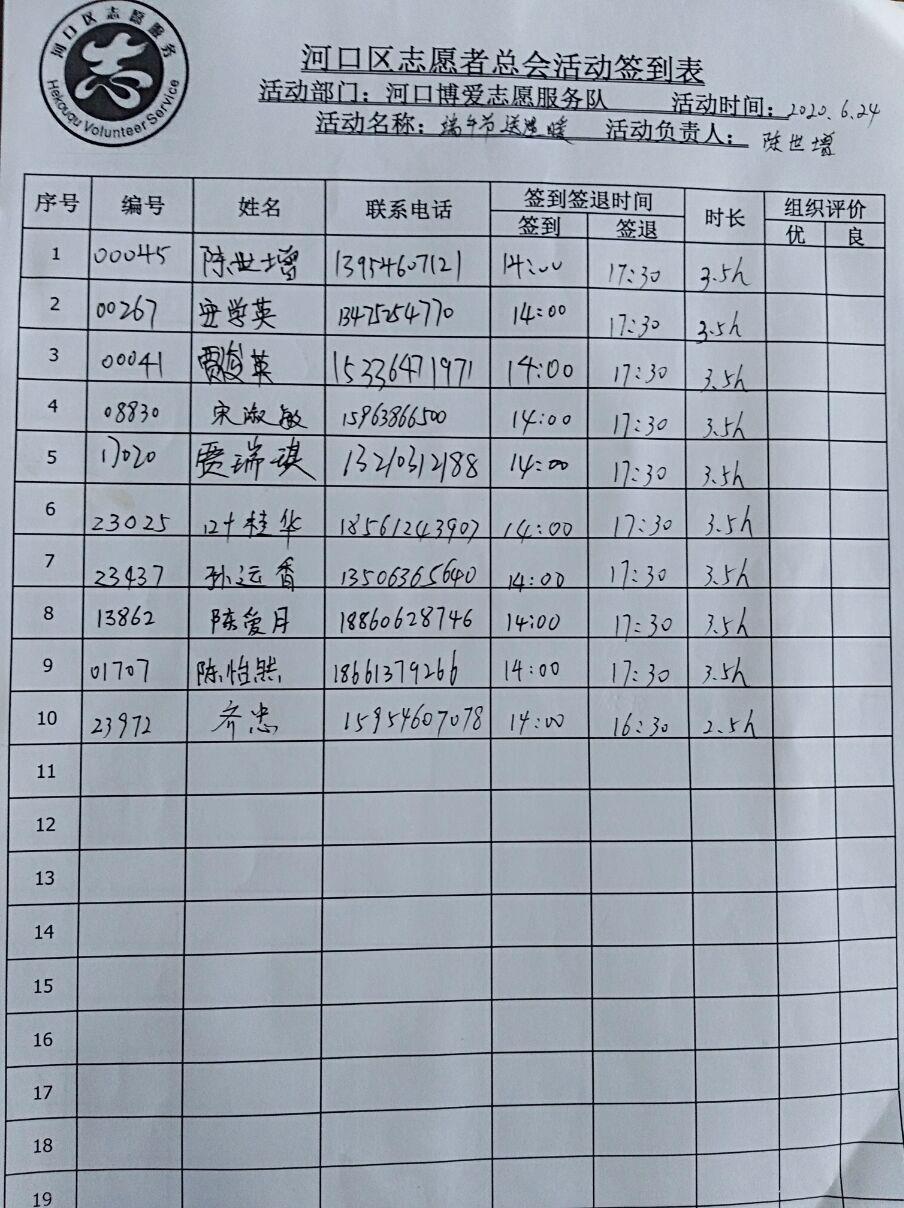 河口区志愿服务
志
Hekouqu Volunteer Service
河口区志愿者总会活动签到表
活动部门：河口博爱志愿服务队 活动时间：2020.6.24
活动名称：端午节送温暖 活动负责人：陈世增
序号 编号 姓名 联系电话 签到签退时间 时长 组织评价
签到 签退 优 良
1 00045 陈世增 13954607121 14:00 17:30 3.5h
2 00267 安学英 13475254770 14:00 17:30 3.5h
3 00041 贾俊英 15336471971 14:00 17:30 3.5h
4 08830 宋淑敏 15963866500 14:00 17:30 3.5h
5 17020 贾瑞琪 13210312188 14:00 17:30 3.5h
6 23025 叶桂华 18561243907 14:00 17:30 3.5h
7 23437 孙运香 13506365640 14:00 17:30 3.5h
8 13862 陈爱月 18860628746 14:00 17:30 3.5h
9 01707 陈怡然 18661379266 14:00 17:30 3.5h
10 23972 齐忠 15954607078 14:00 16:30 2.5h
11
12
13
14
15
16
17
18
19